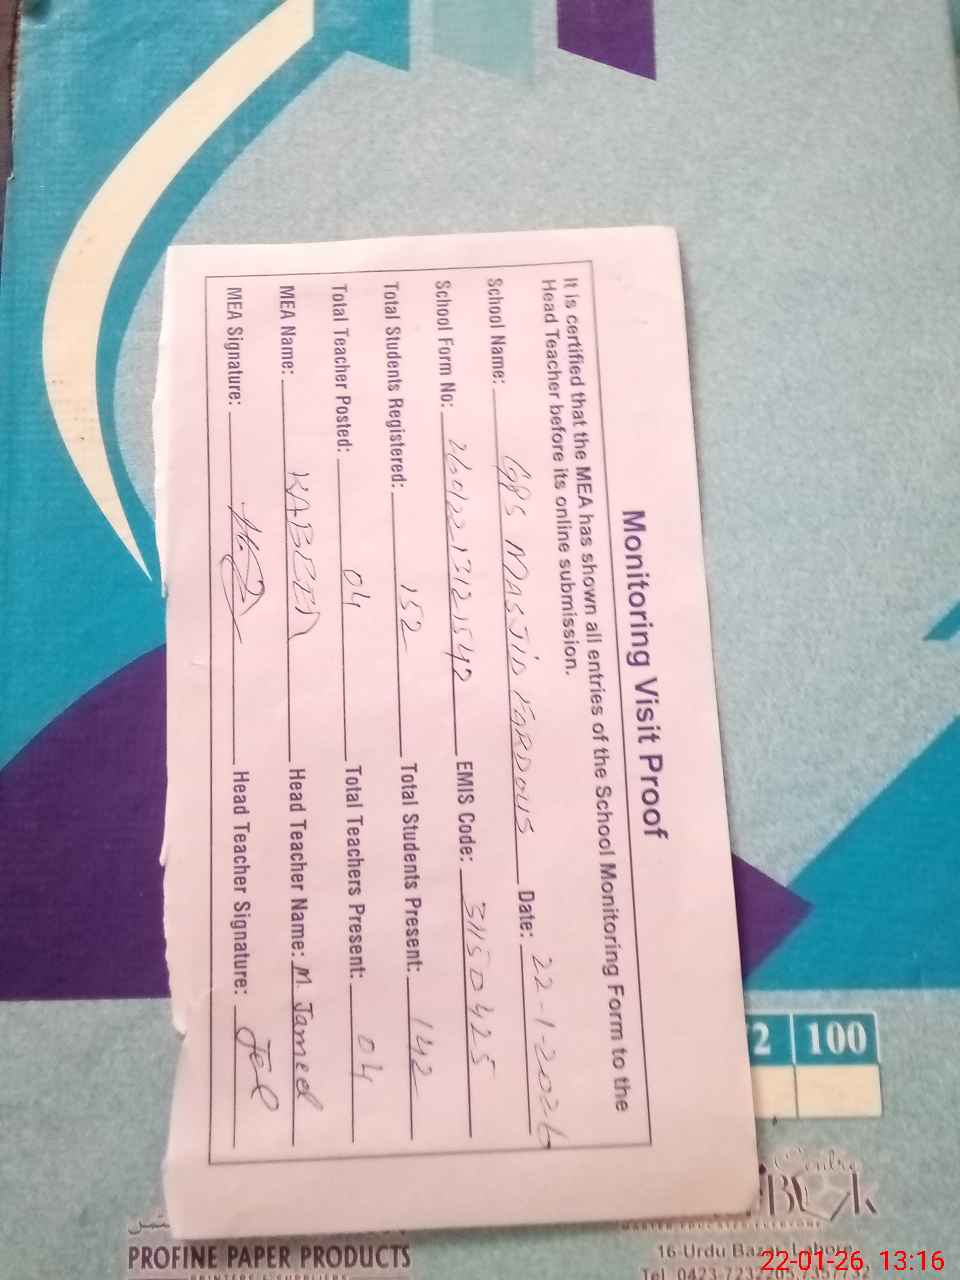 Monitoring Visit Proof
It is certified that the MEA has shown all entries of the School Monitoring Form to the
Head Teacher before its online submission.
School Name: GPS MASJID FARDOUS Date: 22-1-2026
School Form No: 26012213121542 EMIS Code: 31150425
Total Students Registered: 152 Total Students Present: 142
Total Teacher Posted: 04 Total Teachers Present: 04
MEA Name: KABEER Head Teacher Name: M. Jameel
MEA Signature: Head Teacher Signature:
2 100
Centre
PROFINE PAPER PRODUCTS
PRINTERS & SUPPLIERS
16-Urdu Bazar, Lahore
Tel: 0423-7232
22-01-26, 13:16